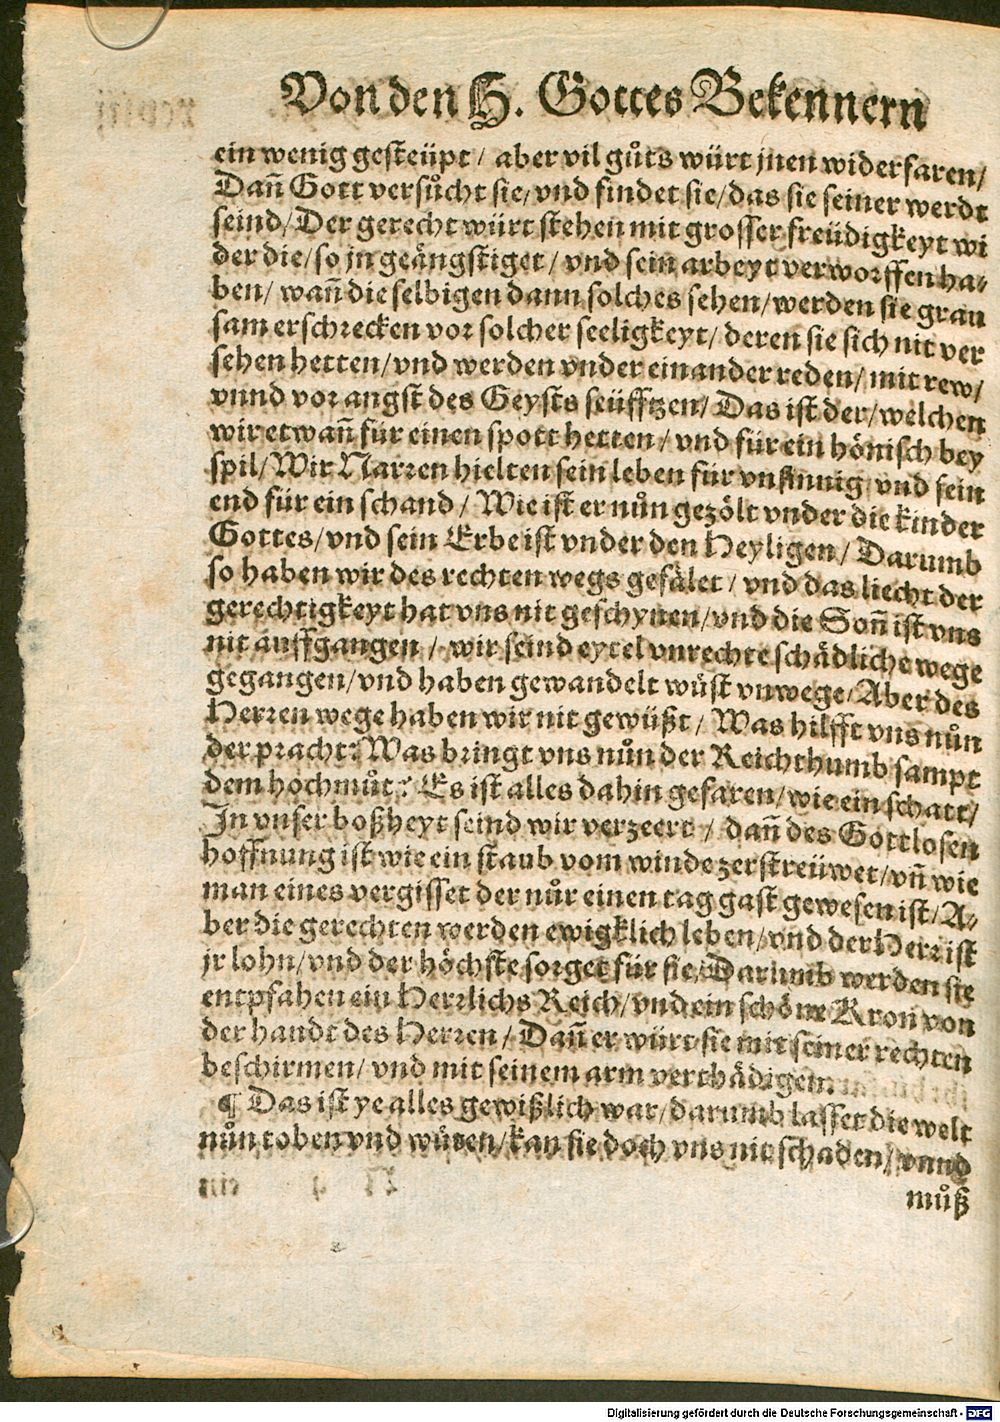 Von den H. Gottes Bekennern
ein wenig gesteüpt / aber vil gůts würt jnen widerfaren/
Dañ Gott versůcht sie/ vnd findet sie/ das sie seiner werdt
seind/ Der gerecht würt stehen mit grosser freüdigkeyt wi
der die/ so jn geängstiget / vnd sein arbeyt verworffen ha⸗
ben/ wañ die selbigen dann solches sehen/ werden sie grau
sam erschrecken vor solcher seeligkeyt/ deren sie sich nit ver
sehen hetten/ vnd werden vnder einander reden/ mit rew/
vnnd vor angst des Geysts seüfftzen/ Das ist der/ welchen
wir etwañ für einen spott hetten / vnd für ein hönisch bey
spil/ Wir Narren hielten sein leben für vnsinnig/ vnd sein
end für ein schand / Wie ist er nůn gezölt vnder die kinder
Gottes/ vnd sein Erbe ist vnder den Heyligen / Darumb
so haben wir des rechten wegs gefälet / vnd das liecht der
gerechtigkeyt hat vns nit geschynen/ vnd die Soñ ist vns
nit auffgangen / wir seind eytel vnrechte schädliche wege
gegangen/ vnd haben gewandelt wůst vnwege/ Aber des
Herren wege haben wir nit gewüßt / Was hilfft vns nůn
der pracht? Was bringt vns nůn der Reichthumb sampt
dem hochmůt? Es ist alles dahin gefaren/ wie ein schatt/
In vnser boßheyt seind wir verzeert / dañ des Gottlosen
hoffnung ist wie ein staub vom winde zerstreüwet/ vñ wie
man eines vergisset der nůr einen tag gast gewesen ist/ A⸗
ber die gerechten werden ewigklich leben/ vnd der Herr ist
jr lohn/ vnd der höchste sorget für sie/ Darumb werden sie
entpfahen ein Herrlichs Reich/ vnd ein schöne Kron von
der handt des Herren / Dañ er würt sie mit seiner rechten
beschirmen/ vnd mit seinem arm verthädigen.
¶ Das ist ye alles gewißlich war/ darumb lasset die welt
nůn toben vnd wüten/ kan sie doch vns nit schaden/ vnnd
můß
Digitalisierung gefördert durch die Deutsche Forschungsgemeinschaft - DFG